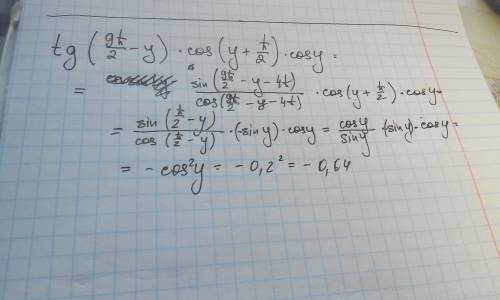 tg (9π/2 - y) · cos(y + π/2) · cosy =
= sin(9π/2 - y - 4π)/cos(9π/2 - y - 4π) · cos(y + π/2) · cosy =
= sin(π/2 - y)/cos(π/2 - y) · (-siny) · cosy = cosy/siny · (-siny) · cosy =
= - cos²y = - 0,2² = - 0,04